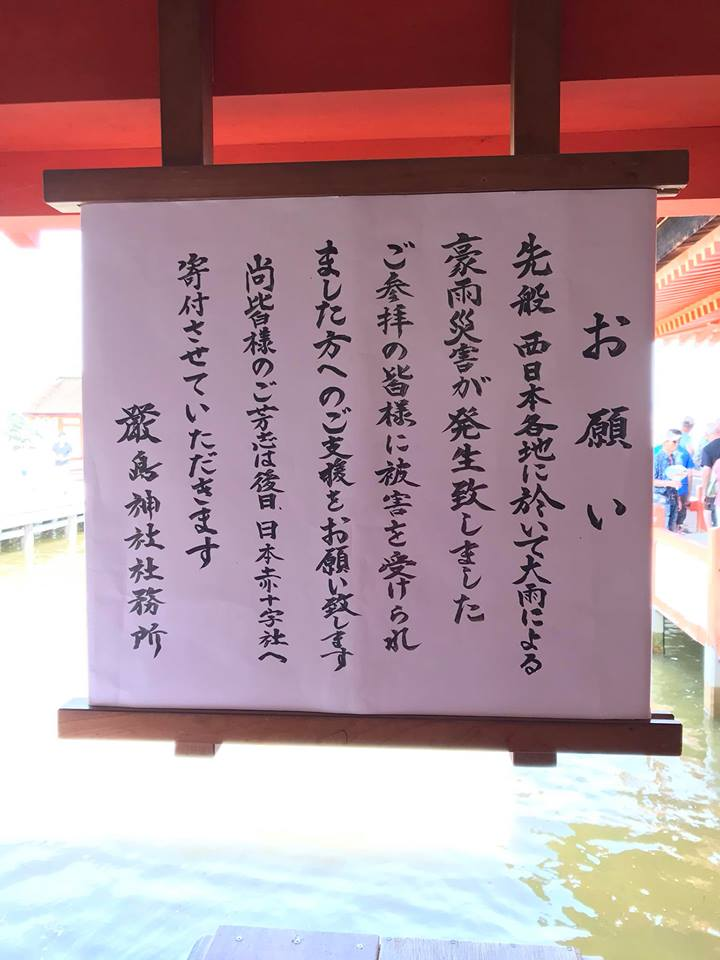 お願い
先般 西日本各地に於いて大雨による
豪雨災害が発生致しました
ご参拝の皆様に被害を受けられ
ました方へのご支援をお願い致します
尚皆様のご芳志は後日、日本赤十字社へ
寄付させていただきます
厳島神社社務所